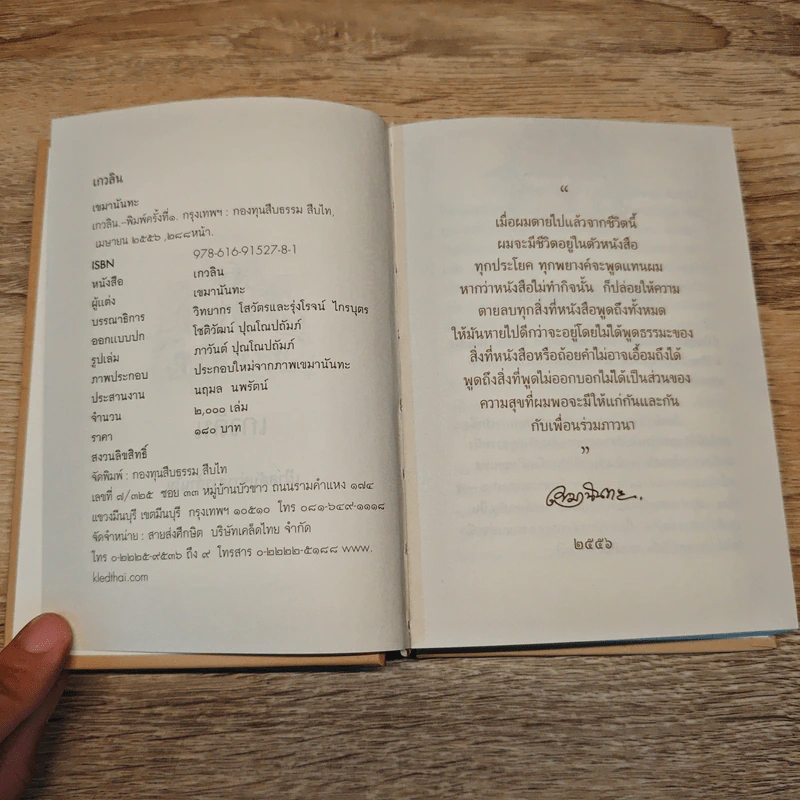 เกวลิน
เขมานันทะ
เกวลิน.–พิมพ์ครั้งที่๑. กรุงเทพฯ : กองทุนสืบธรรม สืบไท,
เมษายน ๒๕๕๖ ,๒๘๘หน้า.
ISBN 978-616-91527-8-1
หนังสือ เกวลิน
ผู้แต่ง เขมานันทะ
บรรณาธิการ วิทยากร โสวัตรและรุ่งโรจน์ ไกรบุตร
ออกแบบปก โชติวัฒน์ ปุณโณปถัมภ์
รูปเล่ม ภาวันต์ ปุณโณปถัมภ์
ภาพประกอบ ประกอบใหม่จากภาพเขมานันทะ
ประสานงาน นฤมล นพรัตน์
จำนวน ๒,๐๐๐ เล่ม
ราคา ๑๘๐ บาท
สงวนลิขสิทธิ์
จัดพิมพ์ : กองทุนสืบธรรม สืบไท
เลขที่ ๗/๓๒๕ ซอย ๓๓ หมู่บ้านบัวขาว ถนนรามคำแหง ๑๗๔
แขวงมีนบุรี เขตมีนบุรี กรุงเทพฯ ๑๐๕๑๐ โทร ๐๘๑-๖๔๙-๑๑๑๘
จัดจำหน่าย : สายส่งศึกษิต บริษัทเคล็ดไทย จำกัด
โทร ๐-๒๒๒๕-๙๕๓๖ ถึง ๙ โทรสาร ๐-๒๒๒๒-๕๑๘๘ www.
kledthai.com
“
เมื่อผมตายไปแล้วจากชีวิตนี้
ผมจะมีชีวิตอยู่ในตัวหนังสือ
ทุกประโยค ทุกพยางค์จะพูดแทนผม
หากว่าหนังสือไม่ทำกิจนั้น ก็ปล่อยให้ความ
ตายลบทุกสิ่งที่หนังสือพูดถึงทั้งหมด
ให้มันหายไปดีกว่าจะอยู่โดยไม่ได้พูดธรรมะของ
สิ่งที่หนังสือหรือถ้อยคำไม่อาจเอื้อมถึงได้
พูดถึงสิ่งที่พูดไม่ออกบอกไม่ได้เป็นส่วนของ
ความสุขที่ผมพอจะมีให้แก่กันและกัน
กับเพื่อนร่วมภาวนา
”
เขมานันทะ.
๒๕๕๖